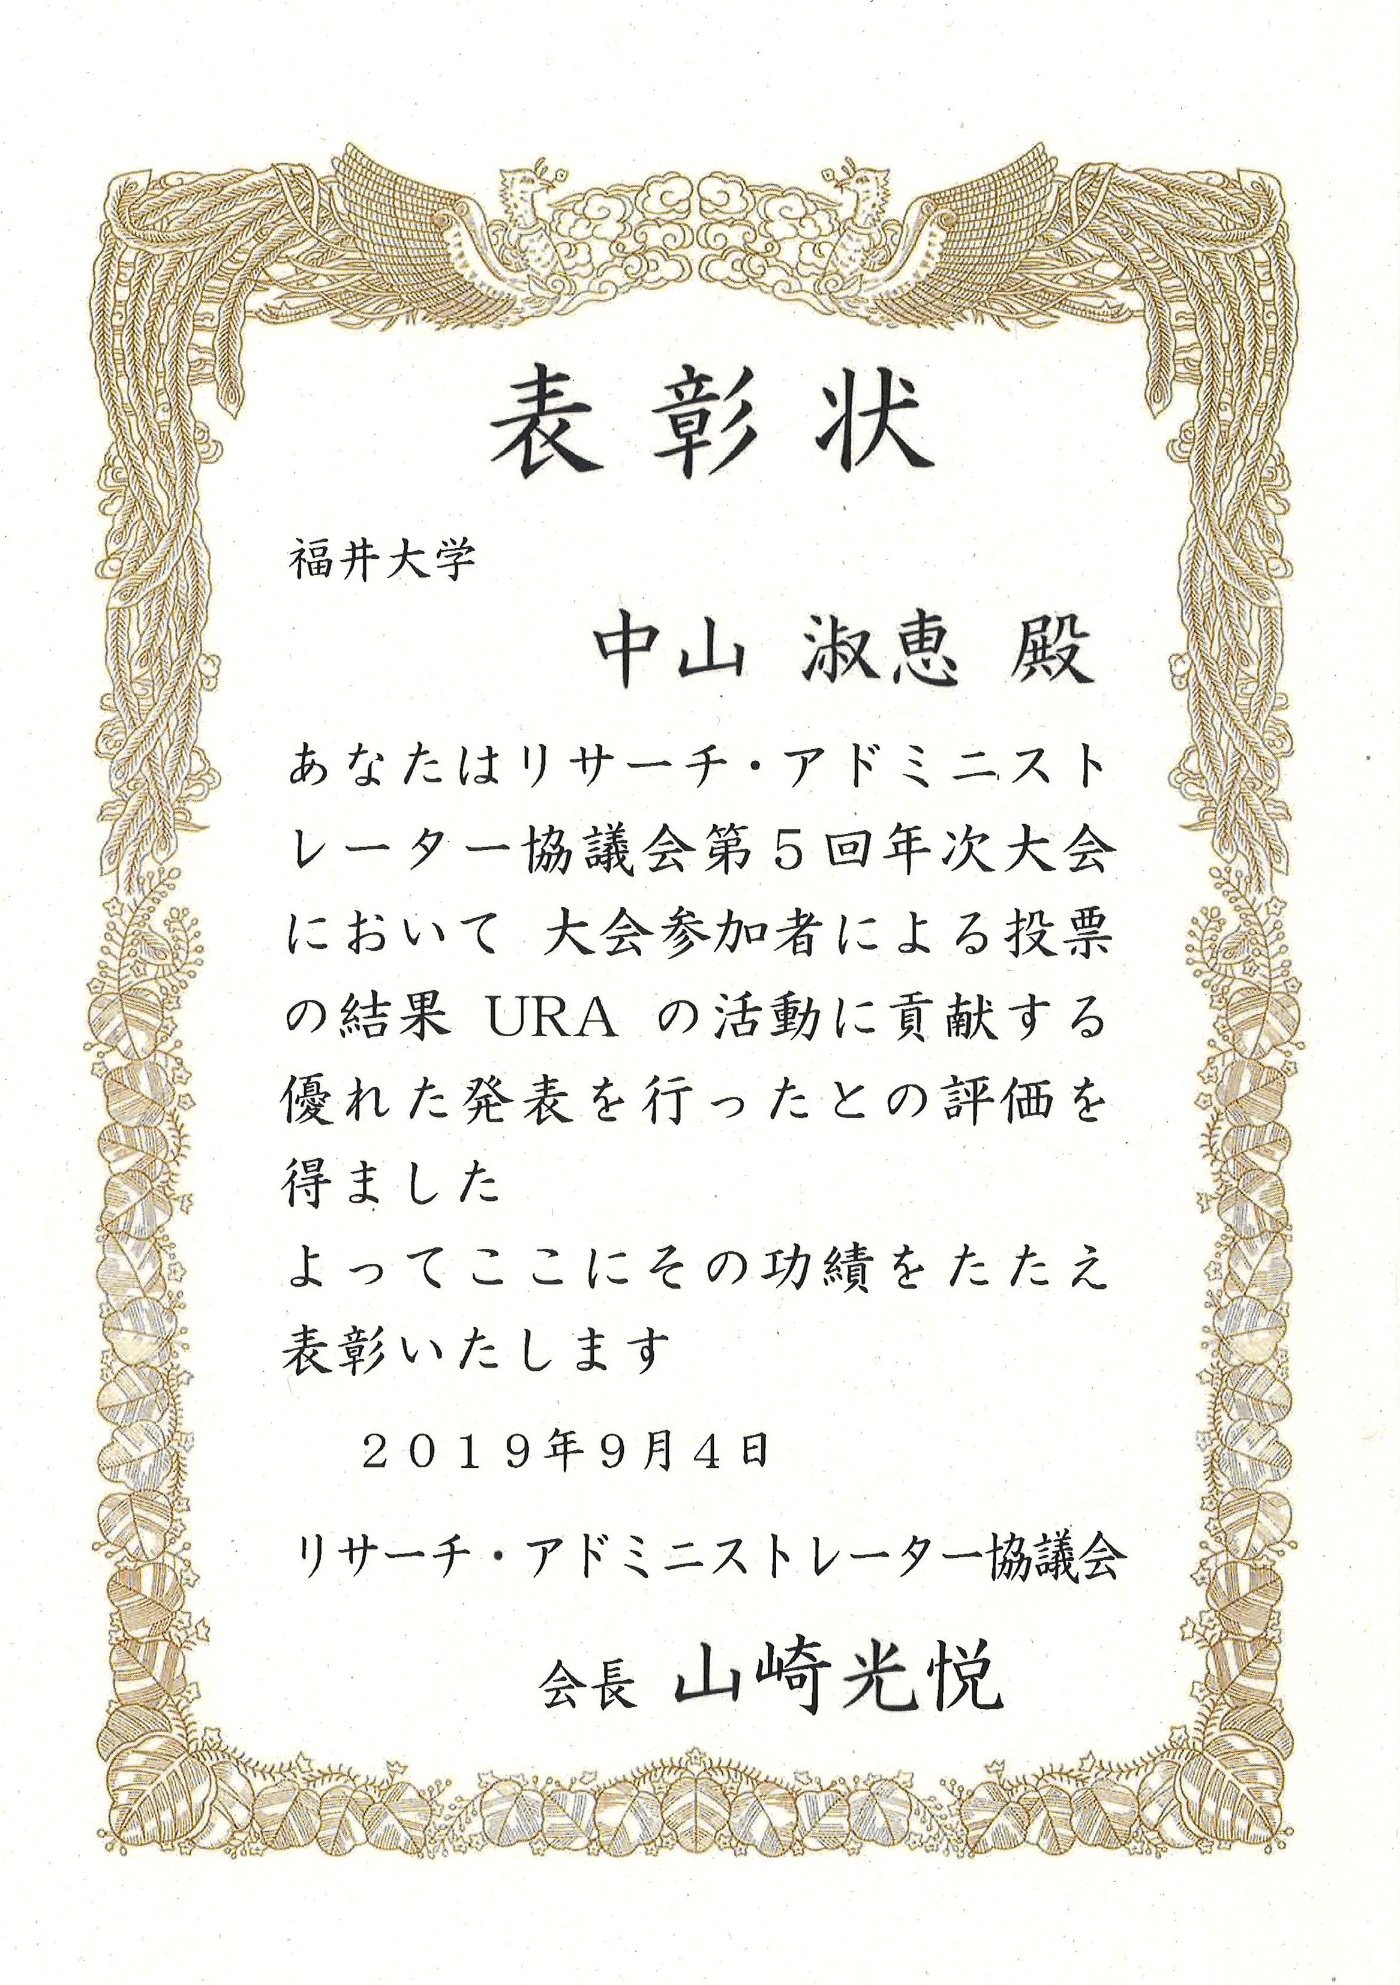 表彰状
福井大学
中山 淑恵 殿
あなたはリサーチ・アドミニスト
レーター協議会第５回年次大会
において 大会参加者による投票
の結果 URA の活動に貢献する
優れた発表を行ったとの評価を
得ました
よってここにその功績をたたえ
表彰いたします
２０１９年９月４日
リサーチ・アドミニストレーター協議会
会長 山崎光悦